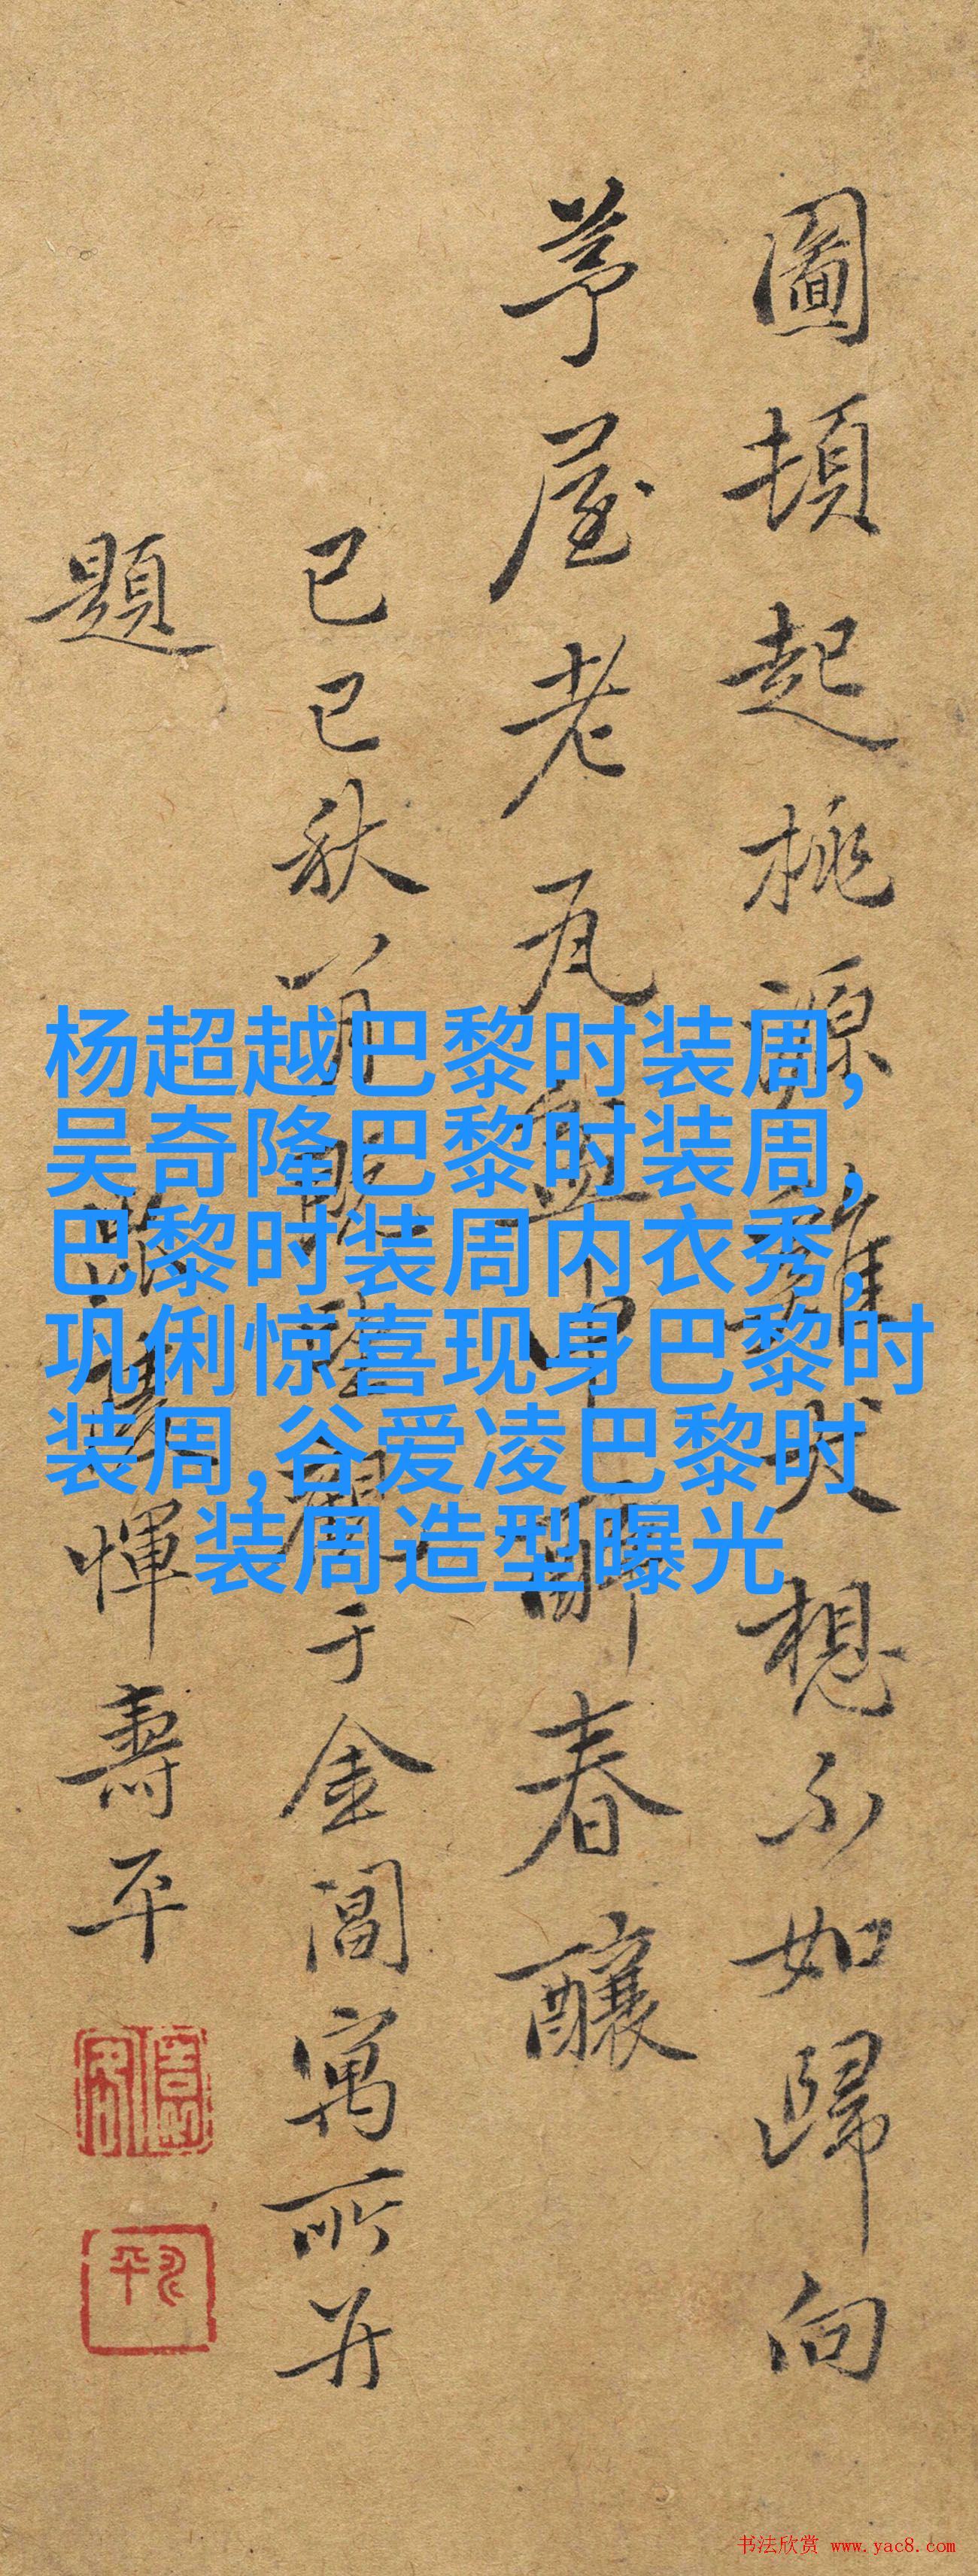 圖頓起桃源雞犬想不如歸向
茅屋老瓦盆中酹春釀
己巳秋八月
于金閶寓所并
題
惲壽平
杨超越巴黎时装周,
吴奇隆巴黎时装周,
巴黎时装周内衣秀,
巩俐惊喜现身巴黎时
装周,谷爱凌巴黎时
装周造型曝光
书法欣赏 www.yac8.com